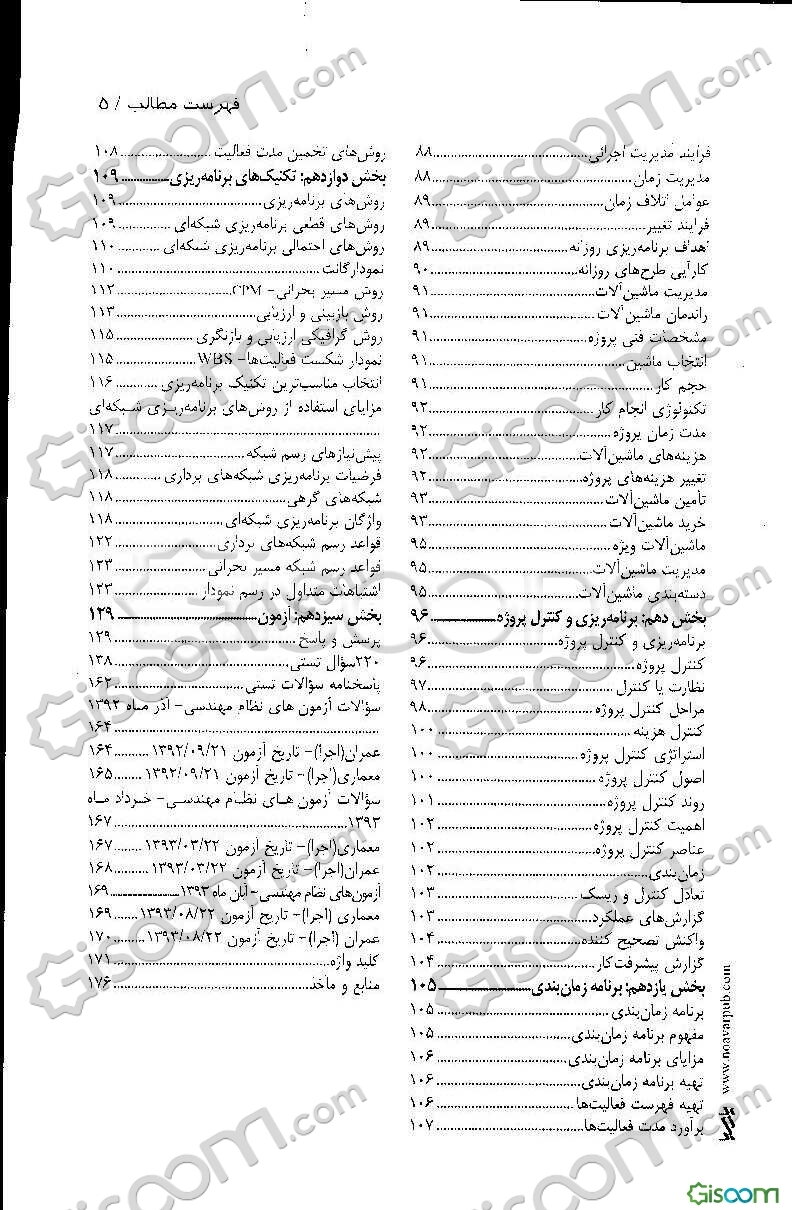 فهرست مطالب / ۵
فرایند مدیریت اجرائی ........ ۸۸
مدیریت زمان ........ ۸۸
عوامل اتلاف زمان ........ ۸۹
فرایند تغییر ........ ۸۹
اهداف برنامه‌ریزی روزانه ........ ۸۹
کارآیی طرح‌های روزانه ........ ۹۰
مدیریت ماشین‌آلات ........ ۹۱
راندمان ماشین‌آلات ........ ۹۱
مشخصات فنی پروژه ........ ۹۱
انتخاب ماشین ........ ۹۱
حجم کار ........ ۹۱
تکنولوژی انجام کار ........ ۹۲
مدت زمان پروژه ........ ۹۲
هزینه‌های ماشین‌آلات ........ ۹۲
تغییر هزینه‌های پروژه ........ ۹۲
تأمین ماشین‌آلات ........ ۹۳
خرید ماشین‌آلات ........ ۹۳
ماشین‌آلات ویژه ........ ۹۵
مدیریت ماشین‌آلات ........ ۹۵
دسته‌بندی ماشین‌آلات ........ ۹۵
بخش دهم: برنامه‌ریزی و کنترل پروژه ........ ۹۶
برنامه‌ریزی و کنترل پروژه ........ ۹۶
کنترل پروژه ........ ۹۶
نظارت یا کنترل ........ ۹۷
مراحل کنترل پروژه ........ ۹۸
کنترل هزینه ........ ۱۰۰
استراتژی کنترل پروژه ........ ۱۰۰
اصول کنترل پروژه ........ ۱۰۰
روند کنترل پروژه ........ ۱۰۱
اهمیت کنترل پروژه ........ ۱۰۲
عناصر کنترل پروژه ........ ۱۰۲
زمان‌بندی ........ ۱۰۲
تعادل کنترل و ریسک ........ ۱۰۳
گزارش‌های عملکرد ........ ۱۰۳
واکنش تصحیح کننده ........ ۱۰۴
گزارش پیشرفت کار ........ ۱۰۴
بخش یازدهم: برنامه زمان‌بندی ........ ۱۰۵
برنامه زمان‌بندی ........ ۱۰۵
مفهوم برنامه زمان‌بندی ........ ۱۰۵
مزایای برنامه زمان‌بندی ........ ۱۰۶
تهیه برنامه زمان‌بندی ........ ۱۰۶
تهیه فهرست فعالیت‌ها ........ ۱۰۶
برآورد مدت فعالیت‌ها ........ ۱۰۷
روش‌های تخمین مدت فعالیت ........ ۱۰۸
بخش دوازدهم: تکنیک‌های برنامه‌ریزی ........ ۱۰۹
روش‌های برنامه‌ریزی ........ ۱۰۹
روش‌های قطعی برنامه‌ریزی شبکه‌ای ........ ۱۰۹
روش‌های احتمالی برنامه‌ریزی شبکه‌ای ........ ۱۱۰
نمودار گانت ........ ۱۱۰
روش مسیر بحرانی- CPM ........ ۱۱۲
روش بازبینی و ارزیابی ........ ۱۱۳
روش گرافیکی ارزیابی و بازنگری ........ ۱۱۵
نمودار شکست فعالیت‌ها- WBS ........ ۱۱۵
انتخاب مناسب‌ترین تکنیک برنامه‌ریزی ........ ۱۱۶
مزایای استفاده از روش‌های برنامه‌ریزی شبکه‌ای
........ ۱۱۷
پیش‌نیازهای رسم شبکه ........ ۱۱۷
فرضیات برنامه‌ریزی شبکه‌های برداری ........ ۱۱۸
شبکه‌های گرهی ........ ۱۱۸
واژگان برنامه‌ریزی شبکه‌ای ........ ۱۱۸
قواعد رسم شبکه‌های برداری ........ ۱۲۲
قواعد رسم شبکه مسیر بحرانی ........ ۱۲۳
اشتباهات متداول در رسم نمودار ........ ۱۲۳
بخش سیزدهم: آزمون ........ ۱۲۹
پرسش و پاسخ ........ ۱۲۹
۲۲۰سؤال تستی ........ ۱۳۸
پاسخنامه سؤالات تستی ........ ۱۶۲
سؤالات آزمون های نظام مهندسی- آذر ماه ۱۳۹۲
........ ۱۶۴
عمران(اجرا)- تاریخ آزمون ۱۳۹۲/۰۹/۲۱ ........ ۱۶۴
معماری(اجرا)- تاریخ آزمون ۱۳۹۲/۰۹/۲۱ ........ ۱۶۵
سؤالات آزمون های نظام مهندسی- خرداد ماه
۱۳۹۳ ........ ۱۶۷
معماری(اجرا)- تاریخ آزمون ۱۳۹۳/۰۳/۲۲ ........ ۱۶۷
عمران(اجرا)- تاریخ آزمون ۱۳۹۳/۰۳/۲۲ ........ ۱۶۸
آزمون‌های نظام مهندسی- آبان ماه ۱۳۹۳ ........ ۱۶۹
معماری (اجرا)- تاریخ آزمون ۱۳۹۳/۰۸/۲۲ ........ ۱۶۹
عمران (اجرا)- تاریخ آزمون ۱۳۹۳/۰۸/۲۲ ........ ۱۷۰
کلید واژه ........ ۱۷۱
منابع و مآخذ ........ ۱۷۶
www.noavarpub.com
Gisoom.com
Gisoom